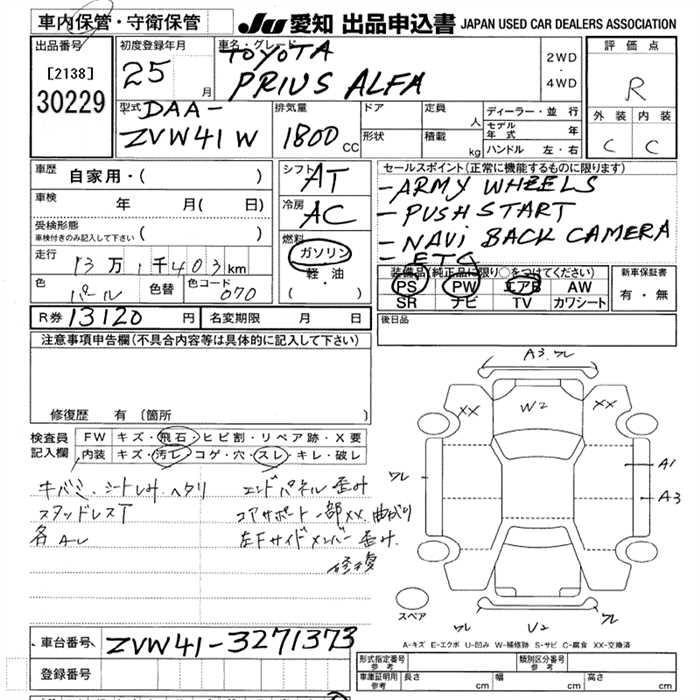 車内保管・守衛保管
JU 愛知 出品申込書 JAPAN USED CAR DEALERS ASSOCIATION
出品番号
[2138]
30229
初度登録年月
25 月
車名・グレード
TOYOTA
PRIUS ALFA
2WD
・
4WD
評価点
R
外装 内装
C C
型式 DAA-
ZVW41W
排気量
1800 CC
ドア
定員
人
形状
積載
kg
ディーラー・並行
モデル年式 年
ハンドル 左・右
車歴 自家用・( )
車検 年 月( 日)
受検形態
車検付きのみ記入して下さい ( )
走行 13万1千403km
色 パール 色替 色コード 070
シフト AT
冷房 AC
燃料
ガソリン
軽・油
( ・ )
セールスポイント(正常に機能するものに限ります)
-ARMY WHEELS
-PUSH START
-NAVi BACK CAMERA
-ETC
装備品(純正品に限り○をつけてください)
PS PW エアB AW
SR ナビ TV カワシート
新車保証書
有・無
R券 13120 円 名変期限 月 日
後日品
注意事項申告欄(不具合内容等は具体的に記入して下さい)
修復歴 有(箇所 )
検査員
記入欄
FW キズ・飛石・ヒビ割・リペア跡・X要
内装 キズ・汚レ・コゲ・穴・スレ・キレ・破レ
キバミ、シートしみ、ヘタリ
スタッドレスT
各AU
エンドパネル歪み
コアサポート一部XX、曲がり
左Fサイドメンバー歪み、
修復
A3.ワレ
XX
W2
XX
ワレ
A1
A3
スペア
ワレ
U2
ワレ
A-キズ E-エクボ U-凹み W-補修跡 S-サビ C-腐食 XX-交換済
車台番号 ZVW41-3271373
登録番号
形式指定番号
参考
類別区分番号
参考
車庫証明用
参考
長さ cm
幅 cm
高さ cm